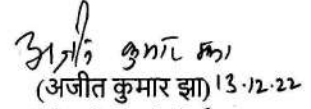 अजीत कुमार झा
(अजीत कुमार झा) 13.12.22